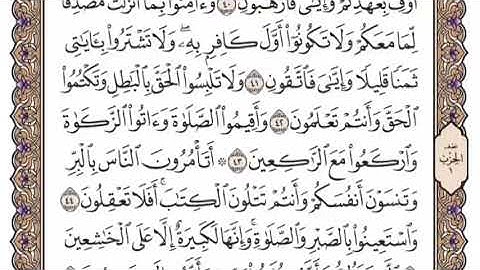 أُوفِ بِعَهْدِكُمْ وَإِيَّٰىَ فَٱرْهَبُونِ ٤٠ وَءَامِنُوا۟ بِمَآ أَنزَلْتُ مُصَدِّقًا
لِّمَا مَعَكُمْ وَلَا تَكُونُوٓا۟ أَوَّلَ كَافِرٍۭ بِهِۦ وَلَا تَشْتَرُوا۟ بِـَٔايَٰتِى
ثَمَنًا قَلِيلًا وَإِيَّٰىَ فَٱتَّقُونِ ٤١ وَلَا تَلْبِسُوا۟ ٱلْحَقَّ بِٱلْبَٰطِلِ وَتَكْتُمُوا۟
ٱلْحَقَّ وَأَنتُمْ تَعْلَمُونَ ٤٢ وَأَقِيمُوا۟ ٱلصَّلَوٰةَ وَءَاتُوا۟ ٱلزَّكَوٰةَ
وَٱرْكَعُوا۟ مَعَ ٱلرَّٰكِعِينَ ٤٣ ۞ أَتَأْمُرُونَ ٱلنَّاسَ بِٱلْبِرِّ
وَتَنسَوْنَ أَنفُسَكُمْ وَأَنتُمْ تَتْلُونَ ٱلْكِتَٰبَ ۚ أَفَلَا تَعْقِلُونَ ٤٤
وَٱسْتَعِينُوا۟ بِٱلصَّبْرِ وَٱلصَّلَوٰةِ ۚ وَإِنَّهَا لَكَبِيرَةٌ إِلَّا عَلَى ٱلْخَٰشِعِينَ
نصف
الحزب
١